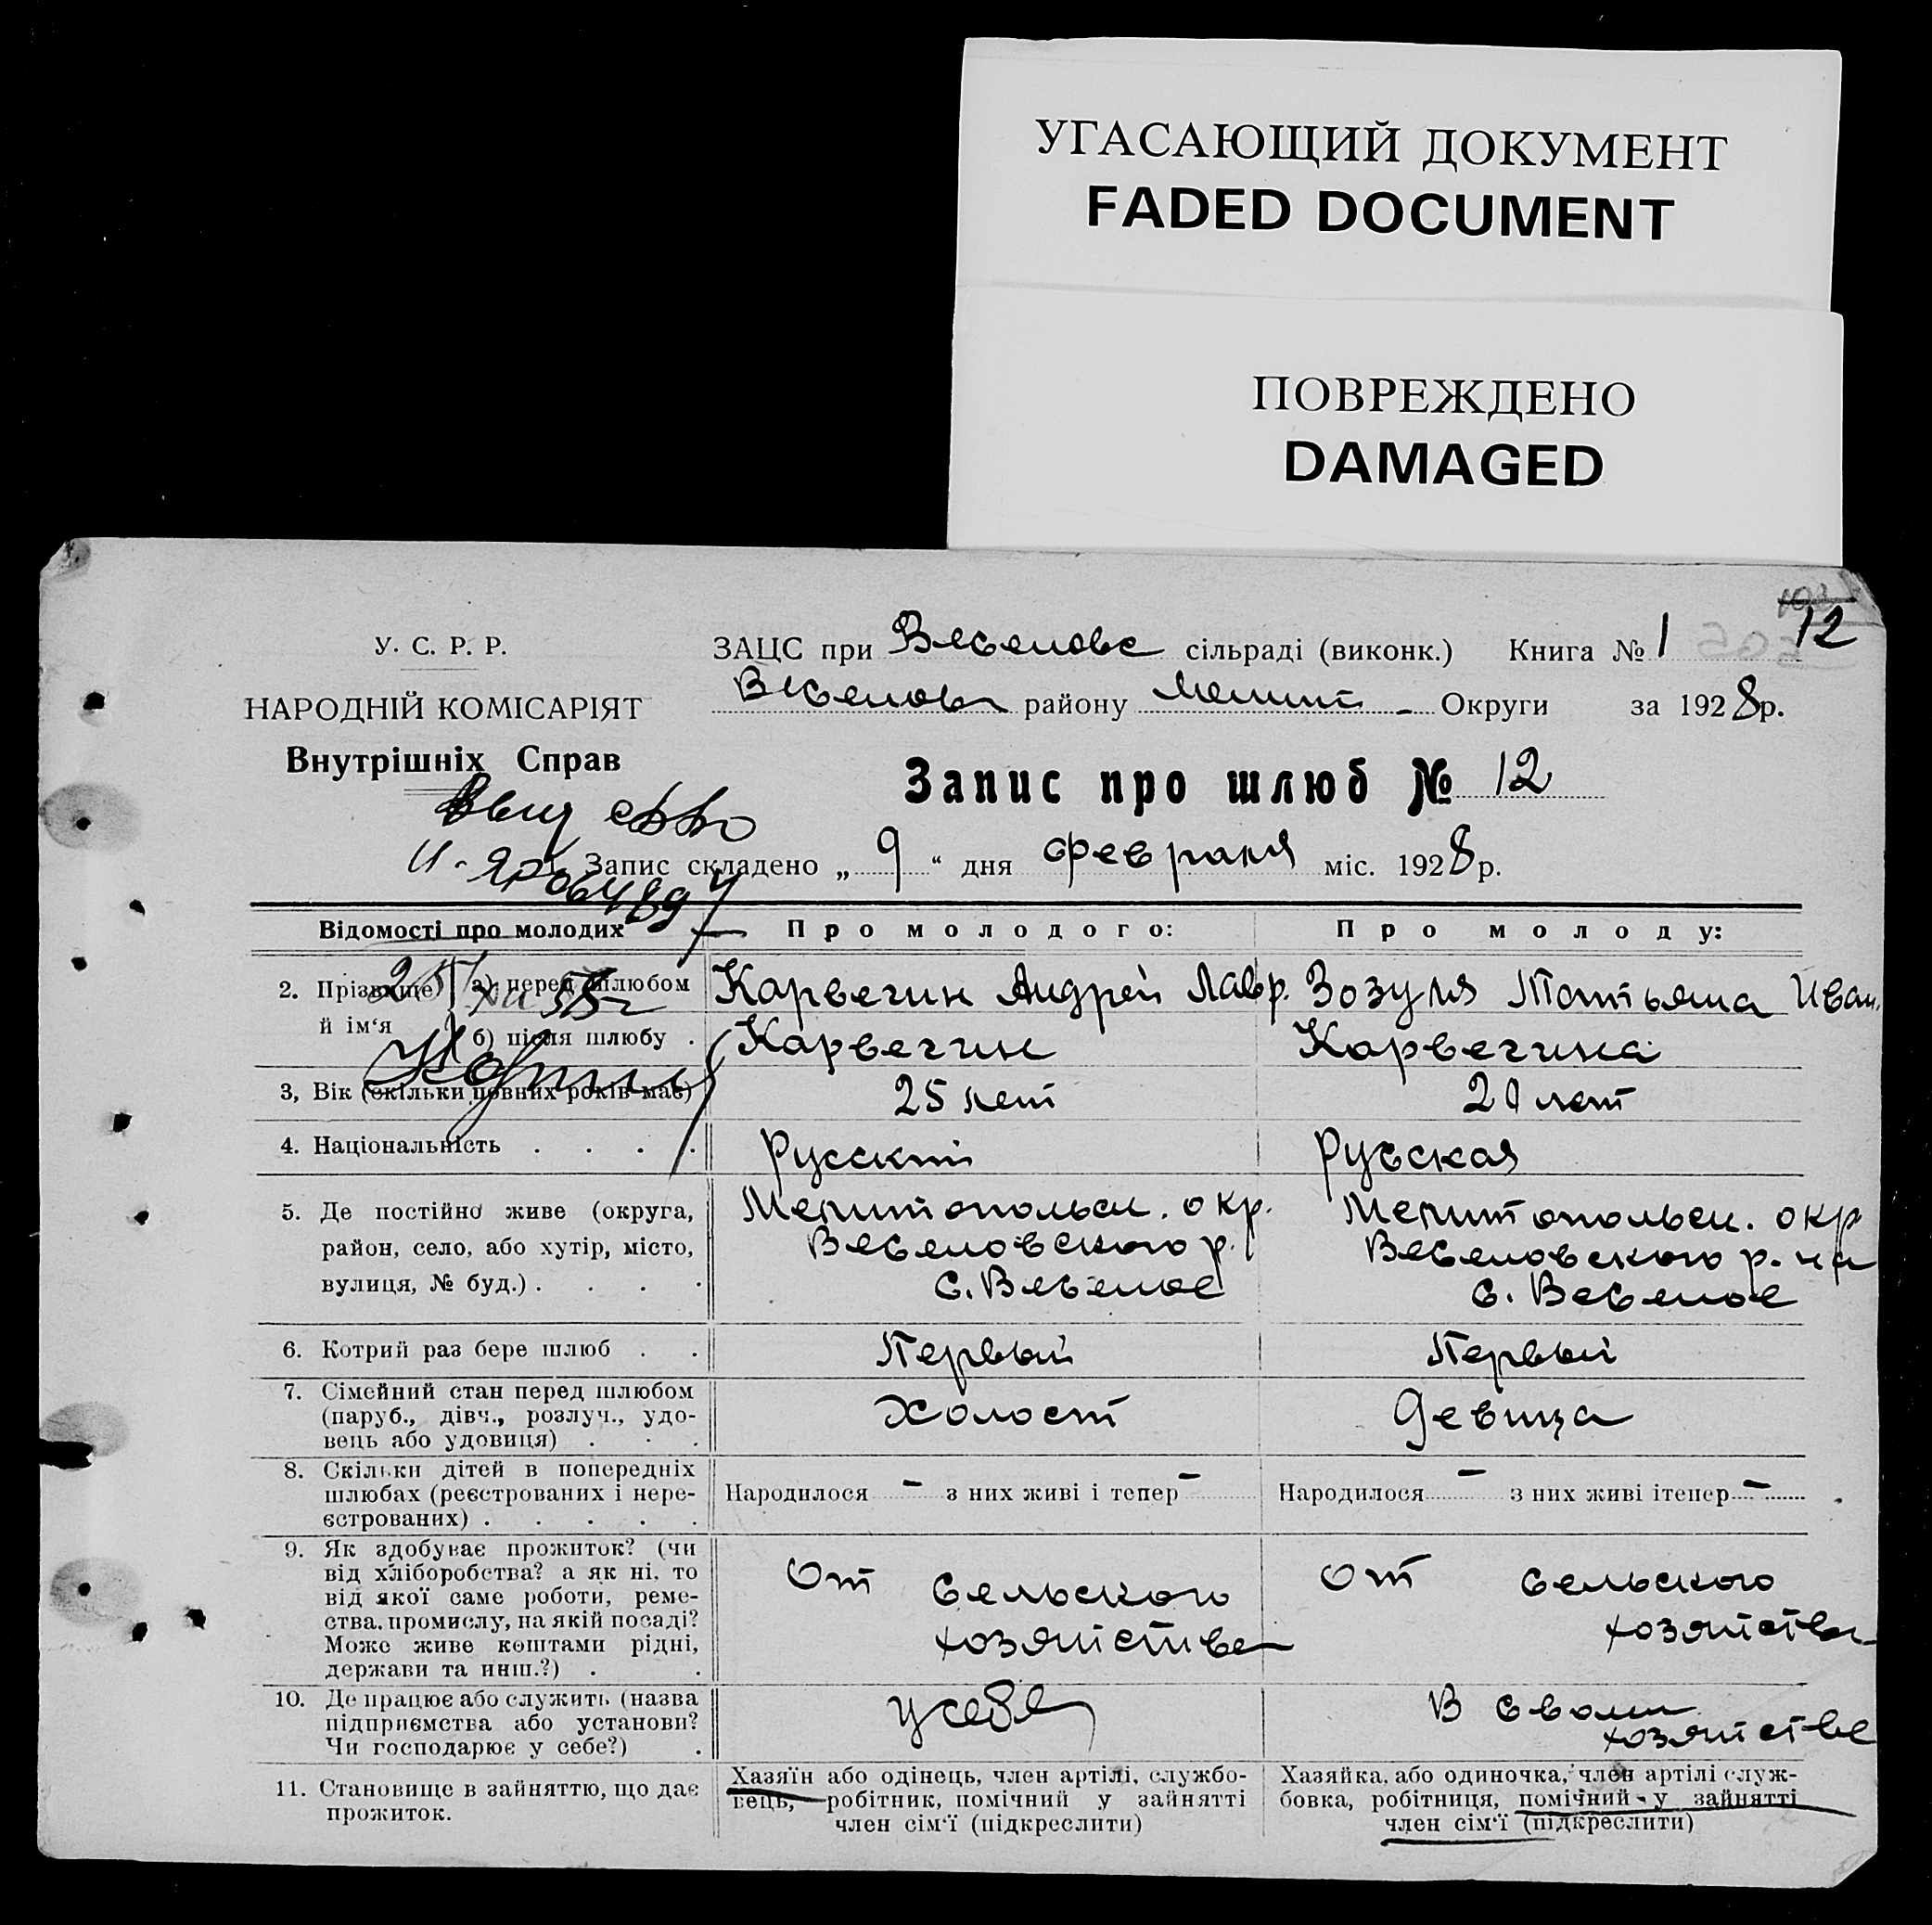 УГАСАЮЩИЙ ДОКУМЕНТ
FADED DOCUMENT
ПОВРЕЖДЕНО
DAMAGED
12
У. С. Р. Р.
НАРОДНІЙ КОМІСАРІЯТ
Внутрішніх Справ
ЗАЦС при Веселовс сільраді (виконк.) Книга № 1
Веселов району Мелит Округи за 1928 р.
Запис про шлюб № 12
1. Запис складено „ 9 “ дня февраля міс. 1928 р.
Відомості про молодих
Про молодого:
Про молоду:
2. Прізвище й ім‘я
а) перед шлюбом
Карвегин Андрей Лавр.
Зозуля Татьяна Иван.
б) після шлюбу .
Карвегин
Карвегина
3, Вік (скільки повних років має)
25 лет
20 лет
4. Національність . . . .
Русский
Русская
5. Де постійно живе (округа,
район, село, або хутір, місто,
вулиця, № буд.) . . . .
Мелитопольск. окр.
Веселовского р.
с. Веселое
Мелитопольск. окр
Веселовского р. на
с. Веселое
6. Котрий раз бере шлюб . .
Первый
Первый
7. Сімейний стан перед шлюбом
(паруб., дівч., розлуч., удо-
вець або удовиця) . . .
Холост
Девица
8. Скільки дітей в попередніх
шлюбах (реєстрованих і нере-
єстрованих) . . . . .
Народилося – з них живі і тепер –
Народилося – з них живі ітепер –
9. Як здобуває прожиток? (чи
від хліборобства? а як ні, то
від якої саме роботи, реме-
ства, промислу, на якій посаді?
Може живе коштами рідні,
держави та инш.?) . .
От сельского
хозяйства
От сельского
хозяйства
10. Де працює або служить (назва
підприємства або установи?
Чи господарює у себе?) .
у себя
В своем
хозяйстве
11. Становище в зайняттю, що дає
прожиток.
Хазяїн або одінець, член артілі, службо-
вець, робітник, помічний у зайнятті
член сім‘ї (підкреслити)
Хазяйка, або одиночка, член артілі служ-
бовка, робітниця, помічний у зайнятті
член сім‘ї (підкреслити)